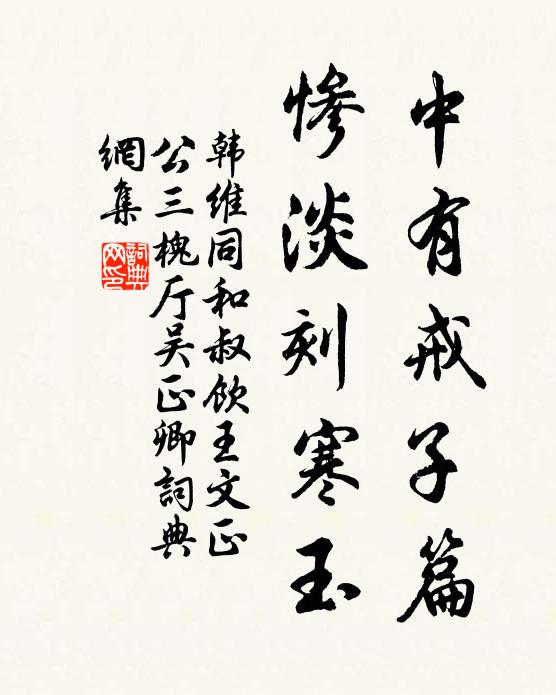 中有戒子篇
惨淡刻寒玉
韩维同和叔饮王文正
公三槐厅吴正卿詞典
網集
詞典
网印